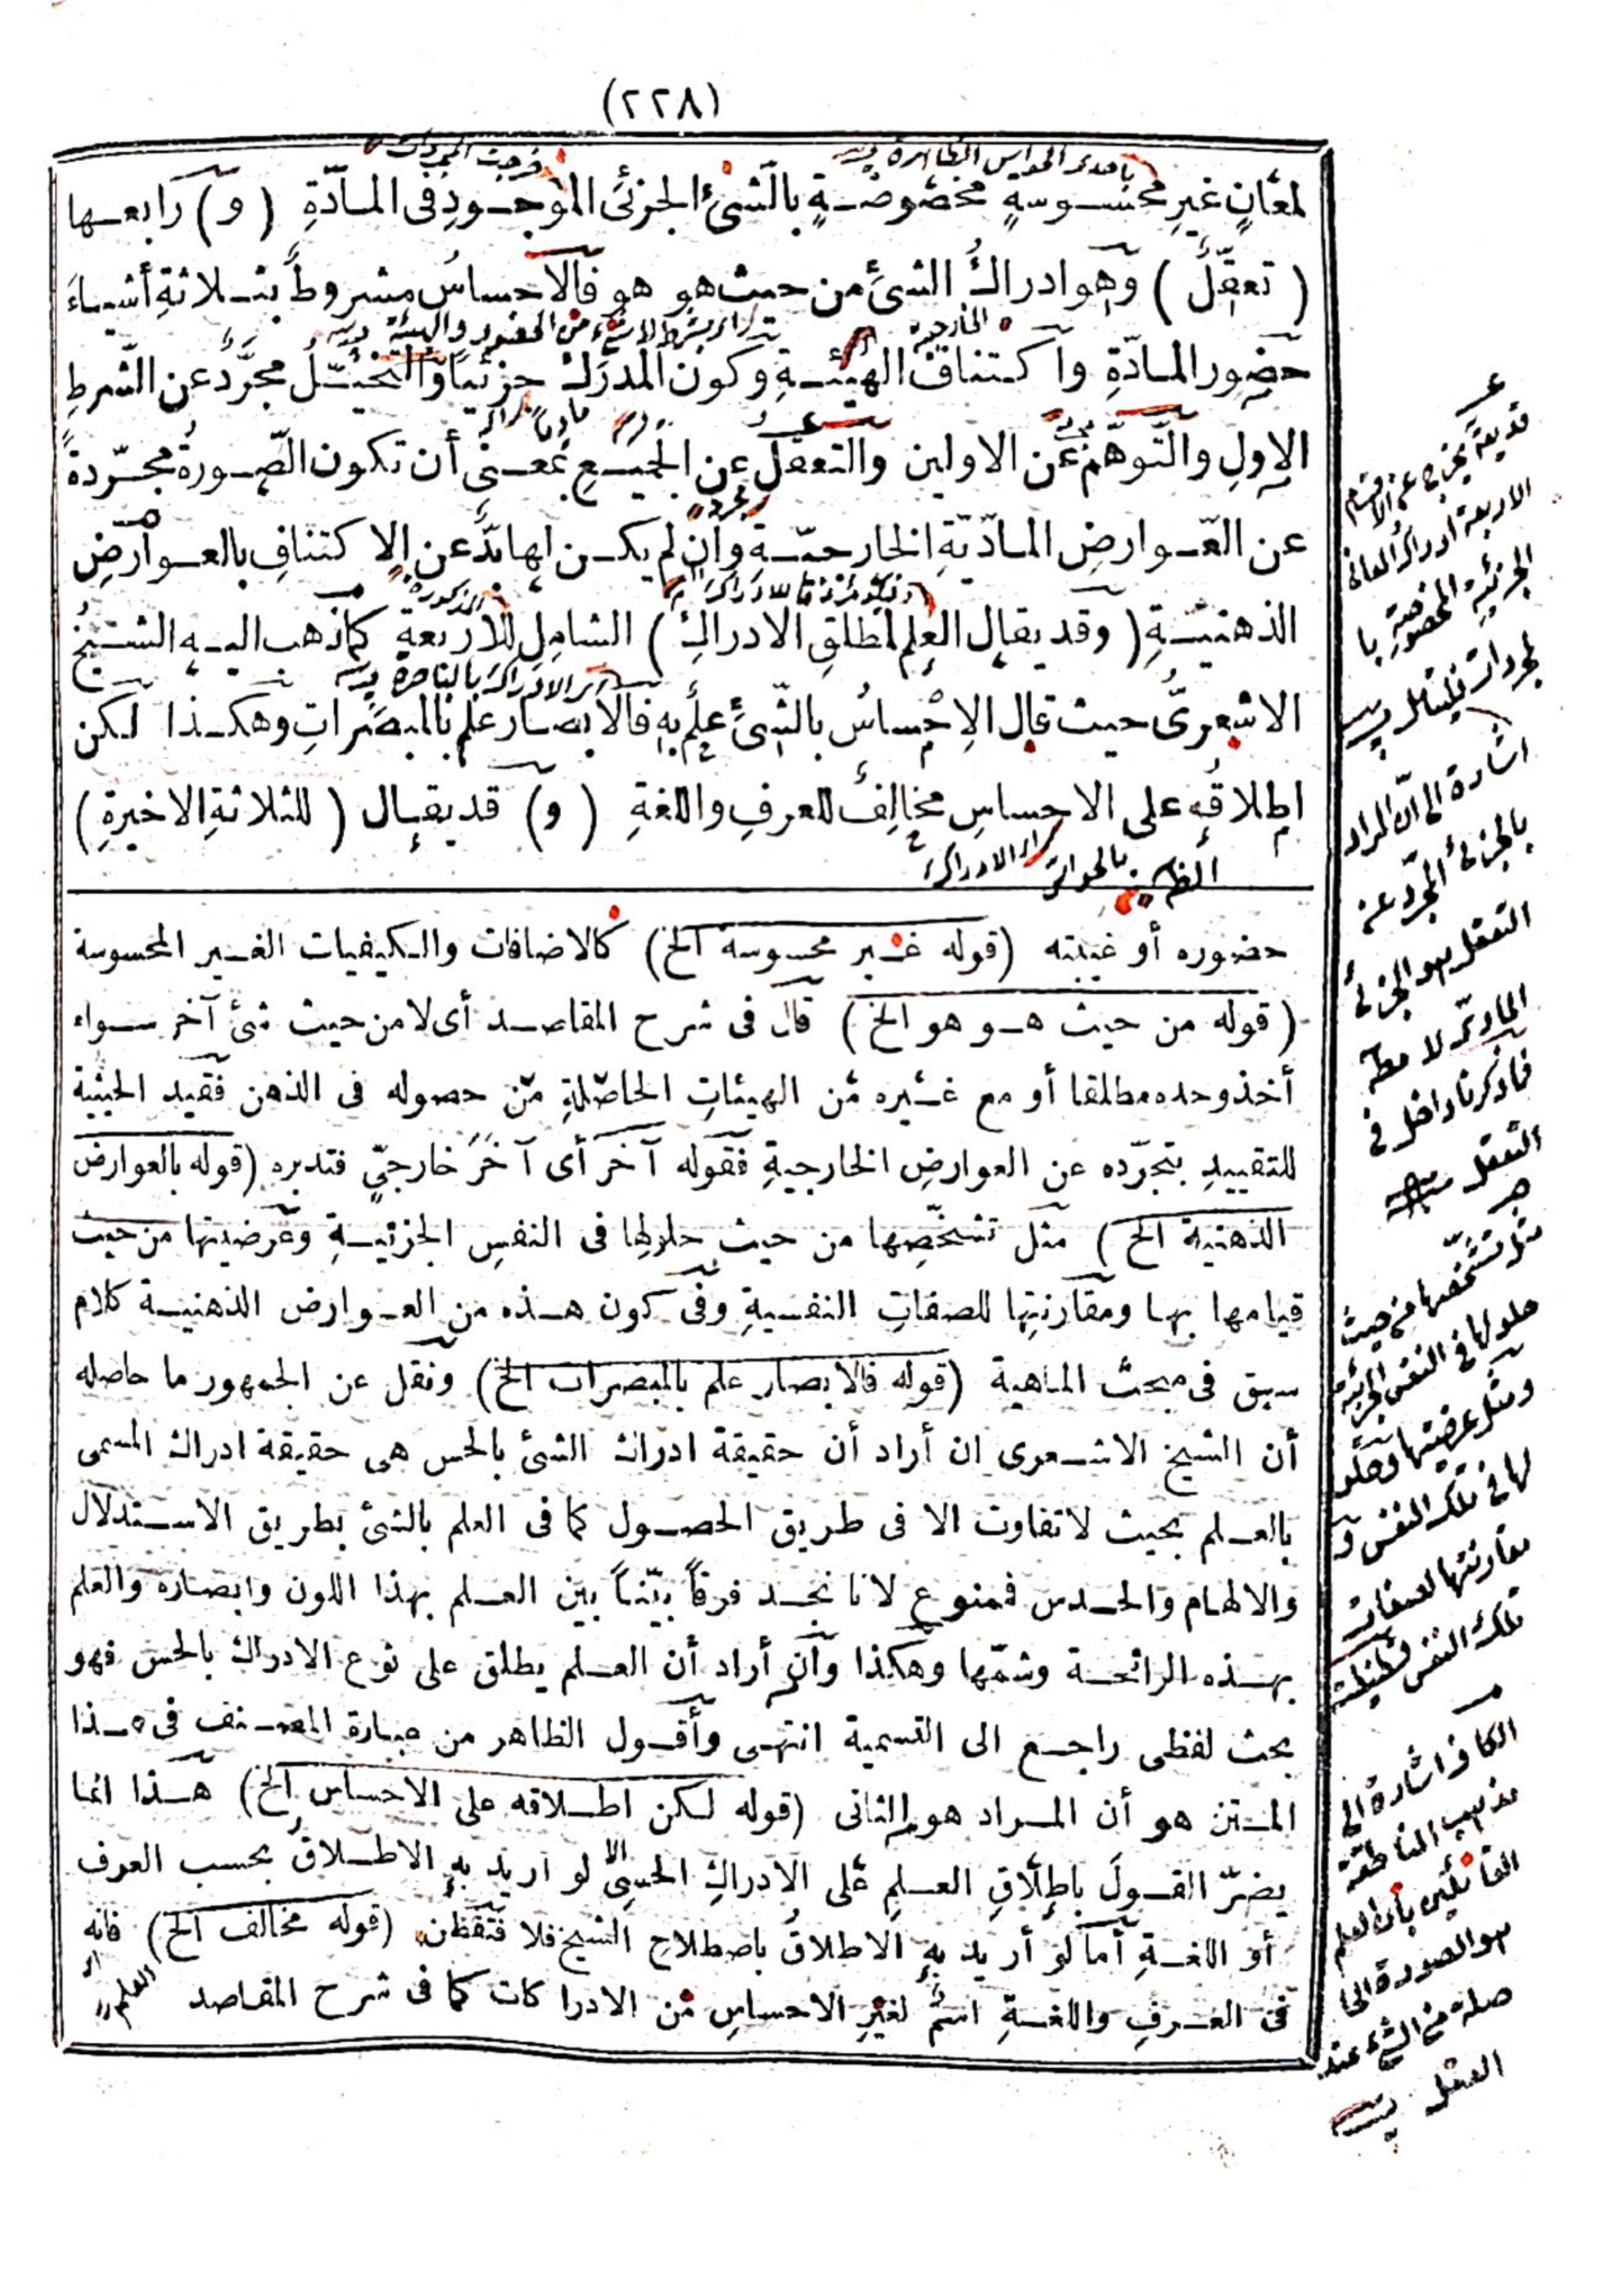 (٢٢٨)
لمعان غير محسوسة مخصوصة بالشئ الجزئى الموجود فى المادّة (و) رابعها
(تعقّل) وهو ادراك الشئ من حيث هو هو فالاحساس مشروط بثلاثة أشياء
حضور المادّة واكتناف الهيئة وكون المدرك جزئيا والتخيّل مجرّد عن الشرط
الاول والتّوهّم عن الاولين والتعقل عن الجميع بمعنى أن تكون الصّورة مجرّدة
عن العوارض المادّيّة الخارجيّة وان لم يكن لها بدّ عن الاكتناف بالعوارض
الذهنيّة (وقد يقال العلم لمطلق الادراك) الشامل للاربعة كما ذهب اليه الشيخ
الاشعرىّ حيث قال الاحساس بالشّئ علم به فالابصار علم بالمبصرات وهكذا لكن
اطلاقه على الاحساس مخالف للعرف واللغة (و) قد يقال (للثلاثة الاخيرة)
حضوره أو غيبته (قوله غير محسوسة الخ) كالاضافات والكيفيات الغير المحسوسة
(قوله من حيث هو هو الخ) قال فى شرح المقاصد أى لا من حيث شئ آخر سواء
أخذ وحده مطلقا أو مع غيره من الهيئات الحاصلة من حصوله فى الذهن فقيد الحيثية
للتقييد بتجرّده عن العوارض الخارجية فقوله آخر أى آخر خارجىّ فتدبره (قوله بالعوارض
الذهنية الخ) مثل تشخّصها من حيث حلولها فى النفس الجزئية وعرضيتها من حيث
قيامها بها ومقارنتها للصفات النفسية وفى كون هذه من العوارض الذهنية كلام
سبق فى مبحث الماهية (قوله فالابصار علم بالمبصرات الخ) ونقل عن الجمهور ما حاصله
أن الشيخ الاشعرى ان أراد أن حقيقة ادراك الشئ بالحس هى حقيقة ادراك المسمى
بالعلم بحيث لا تفاوت الا فى طريق الحصول كما فى العلم بالشئ بطريق الاستدلال
والالهام والحدس فمنوع لانا نجد فرقاً بيّناً بين العلم بهذا اللون وابصاره والعلم
بهذه الرائحة وشمّها وهكذا وان أراد أن العلم يطلق على نوع الادراك بالحس فهو
بحث لفظى راجع الى التسمية انتهى وأقول الظاهر من عبارة المصنف فى هذا
المتن هو أن المراد هو الثانى (قوله لكن اطلاقه على الاحساس الخ) هذا انما
يضرّ القول باطلاق العلم على الادراك الحسى لو اريد به الاطلاق بحسب العرف
أو اللغة أما لو أريد به الاطلاق باصطلاح الشيخ فلا فتفظن (قوله مخالف الخ) فانه
فى العرف واللغة اسم لغير الاحساس من الادراكات كما فى شرح المقاصد
باحدى الحواس الظاهرة
الخارجية
المذكورة
اى العلم
الاربعة ادراك المعانى
الجزئية المخصوصة با
لمجردات فليتأمل
اشارة الى أنّ المراد
بالجزئى المجرّد عنه
التعقل هو الجزئى
المادّى لا مط
فما ذكرنا داخل فى
التعقل
مثل تشخّصها من حيث
حلولها فى النفس الجزئية
ومثل عرضيتها وحلو
لها فى تلك النفس و
مقارنتها لصفات
تلك النفس
الكاف اشارة الى
القائلين بأن العلم
هو الصورة الحا
صلة من الشئ عند
العقل